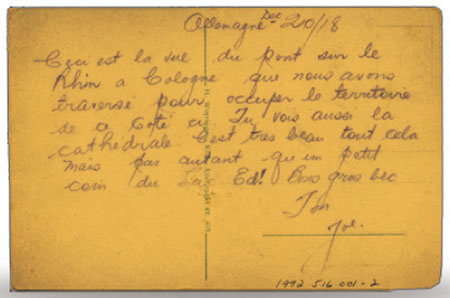 Allemagne Dec 20/18
Ceci est la vue du pont sur le
Rhin a Cologne que nous avons
traversé pour occuper le territoire
de ce coté ci Tu vois aussi la
cathédrale C'est tres beau tout cela
mais pas autant que un petit
coin du Lac Ed! Gros bec
Ton
Joe.
1992 516 001-2